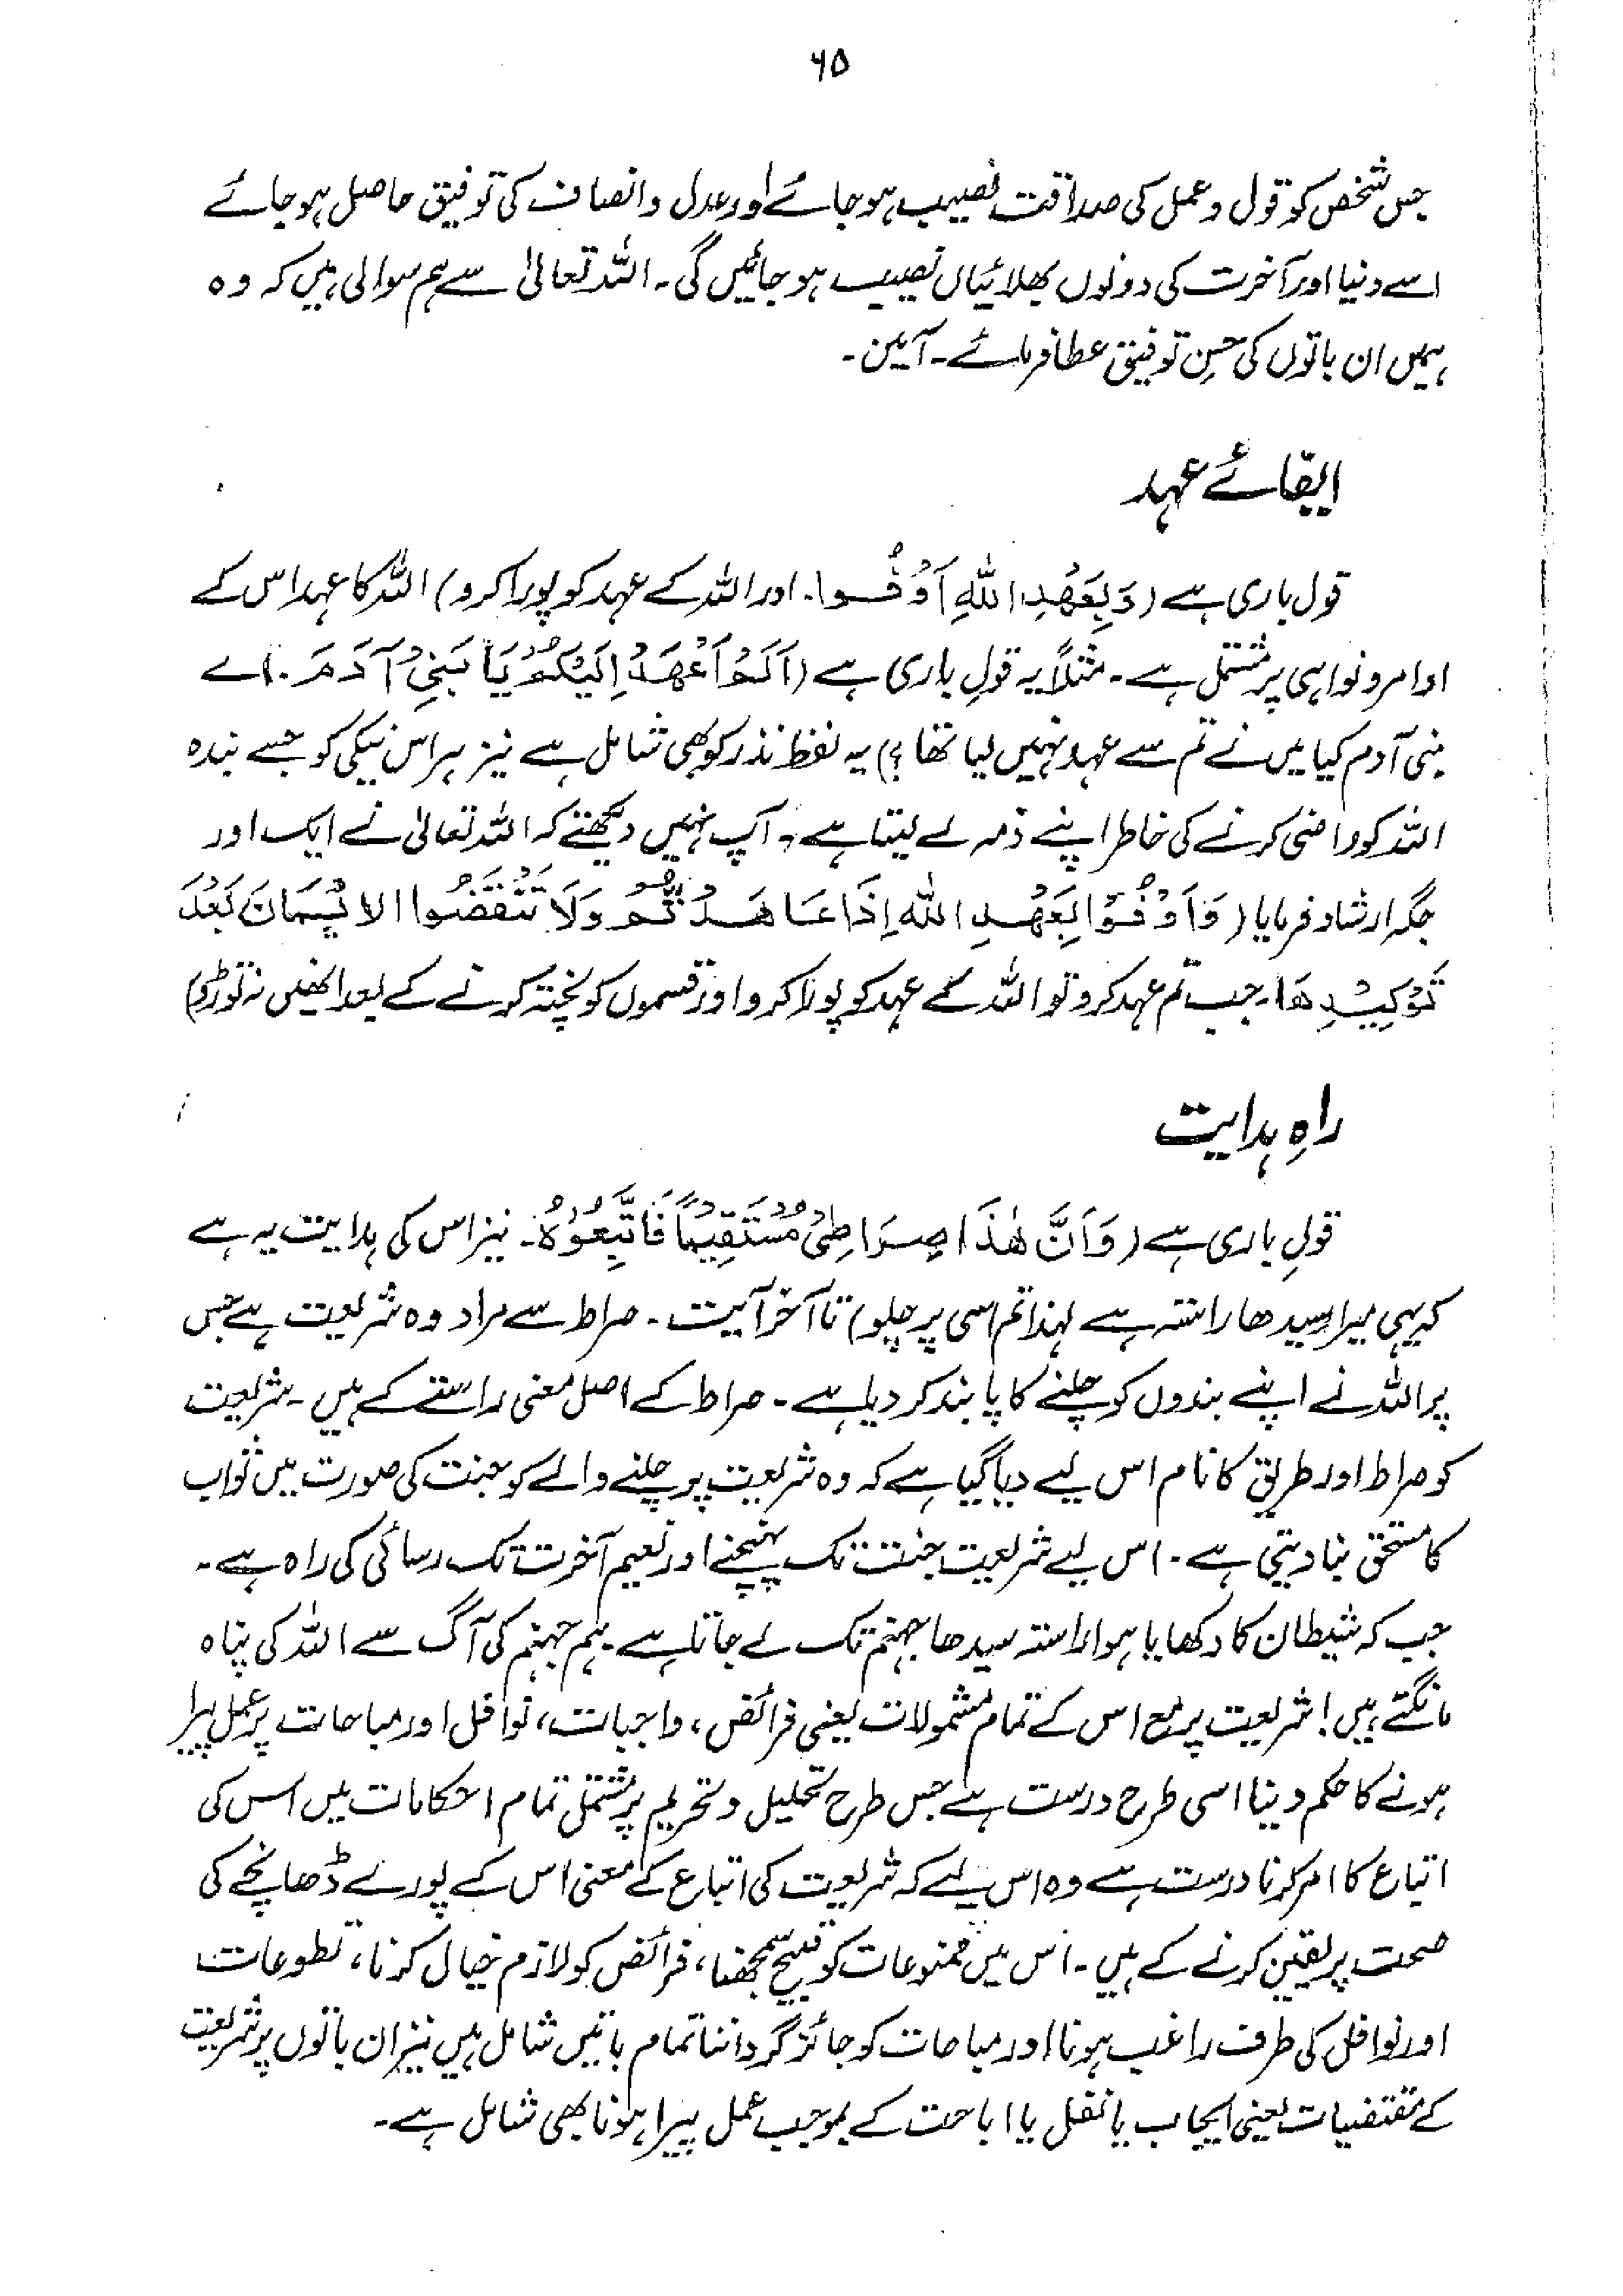 ۶۵
جس شخص کو قول و عمل کی صداقت نصیب ہو جائے اور عدل و انصاف کی توفیق حاصل ہو جائے
اسے دنیا اور آخرت کی دونوں بھلائیاں نصیب ہو جائیں گی۔ اللہ تعالیٰ سے ہم سوالی ہیں کہ وہ
ہمیں ان باتوں کی حسنِ توفیق عطا فرمائے۔ آمین۔
ایفائے عہد
قول باری ہے (وَبِعَهْدِ اللّٰهِ اَوْفُوا۔ اور اللہ کے عہد کو پورا کرو) اللہ کا عہد اس کے
اوامر و نواہی پر مشتمل ہے۔ مثلاً یہ قولِ باری ہے (اَلَمْ اَعْهَدْ اِلَيْكُمْ يَا بَنِيْ آدَمَ۔ اے
بنی آدم کیا میں نے تم سے عہد نہیں لیا تھا؟) یہ لفظ نذر کو بھی شامل ہے نیز ہر اس نیکی کو جسے بندہ
اللہ کو راضی کرنے کی خاطر اپنے ذمہ لے لیتا ہے۔ آپ نہیں دیکھتے کہ اللہ تعالیٰ نے ایک اور
جگہ ارشاد فرمایا (وَاَوْفُوْا بِعَهْدِ اللّٰهِ اِذَا عَاهَدْتُّمْ وَلَا تَنْقُضُوا الْاَيْمَانَ بَعْدَ
تَوْكِيْدِهَا۔ جب تم عہد کرو تو اللہ کے عہد کو پورا کرو اور قسموں کو پختہ کرنے کے بعد انھیں نہ توڑو)
راہِ ہدایت
قولِ باری ہے (وَاَنَّ هٰذَا صِرَاطِيْ مُسْتَقِيْمًا فَاتَّبِعُوْهُ۔ نیز اس کی ہدایت یہ ہے
کہ یہی میرا سیدھا راستہ ہے لہٰذا تم اسی پر چلو) تا آخر آیت۔ صراط سے مراد وہ شریعت ہے جس
پر اللہ نے اپنے بندوں کو چلنے کا پابند کر دیا ہے۔ صراط کے اصل معنی راستے کے ہیں۔ شریعت
کو صراط اور طریق کا نام اس لیے دیا گیا ہے کہ وہ شریعت پر چلنے والے کو جنت کی صورت میں ثواب
کا مستحق بنا دیتی ہے۔ اس لیے شریعت جنت تک پہنچنے اور نعیم آخرت تک رسائی کی راہ ہے۔
جب کہ شیطان کا دکھایا ہوا راستہ سیدھا جہنم تک لے جاتا ہے۔ ہم جہنم کی آگ سے اللہ کی پناہ
مانگتے ہیں! شریعت پر مع اس کے تمام مشمولات یعنی فرائض، واجبات، نوافل اور مباحات پر عمل پیرا
ہونے کا حکم دینا اسی طرح درست ہے جس طرح تحلیل و تحریم پر مشتمل تمام احکامات میں اس کی
اتباع کا امر کرنا درست ہے وہ اس لیے کہ شریعت کی اتباع کے معنی اس کے پورے ڈھانچے کی
صحت پر یقین کرنے کے ہیں۔ اس میں ممنوعات کو قبیح سمجھنا، فرائض کو لازم خیال کرنا، تطوعات
اور نوافل کی طرف راغب ہونا اور مباحات کو جائز گرداننا تمام باتیں شامل ہیں نیز ان باتوں پر شریعت
کے مقتضیات یعنی ایجاب یا نفل یا اباحت کے بموجب عمل پیرا ہونا بھی شامل ہے۔